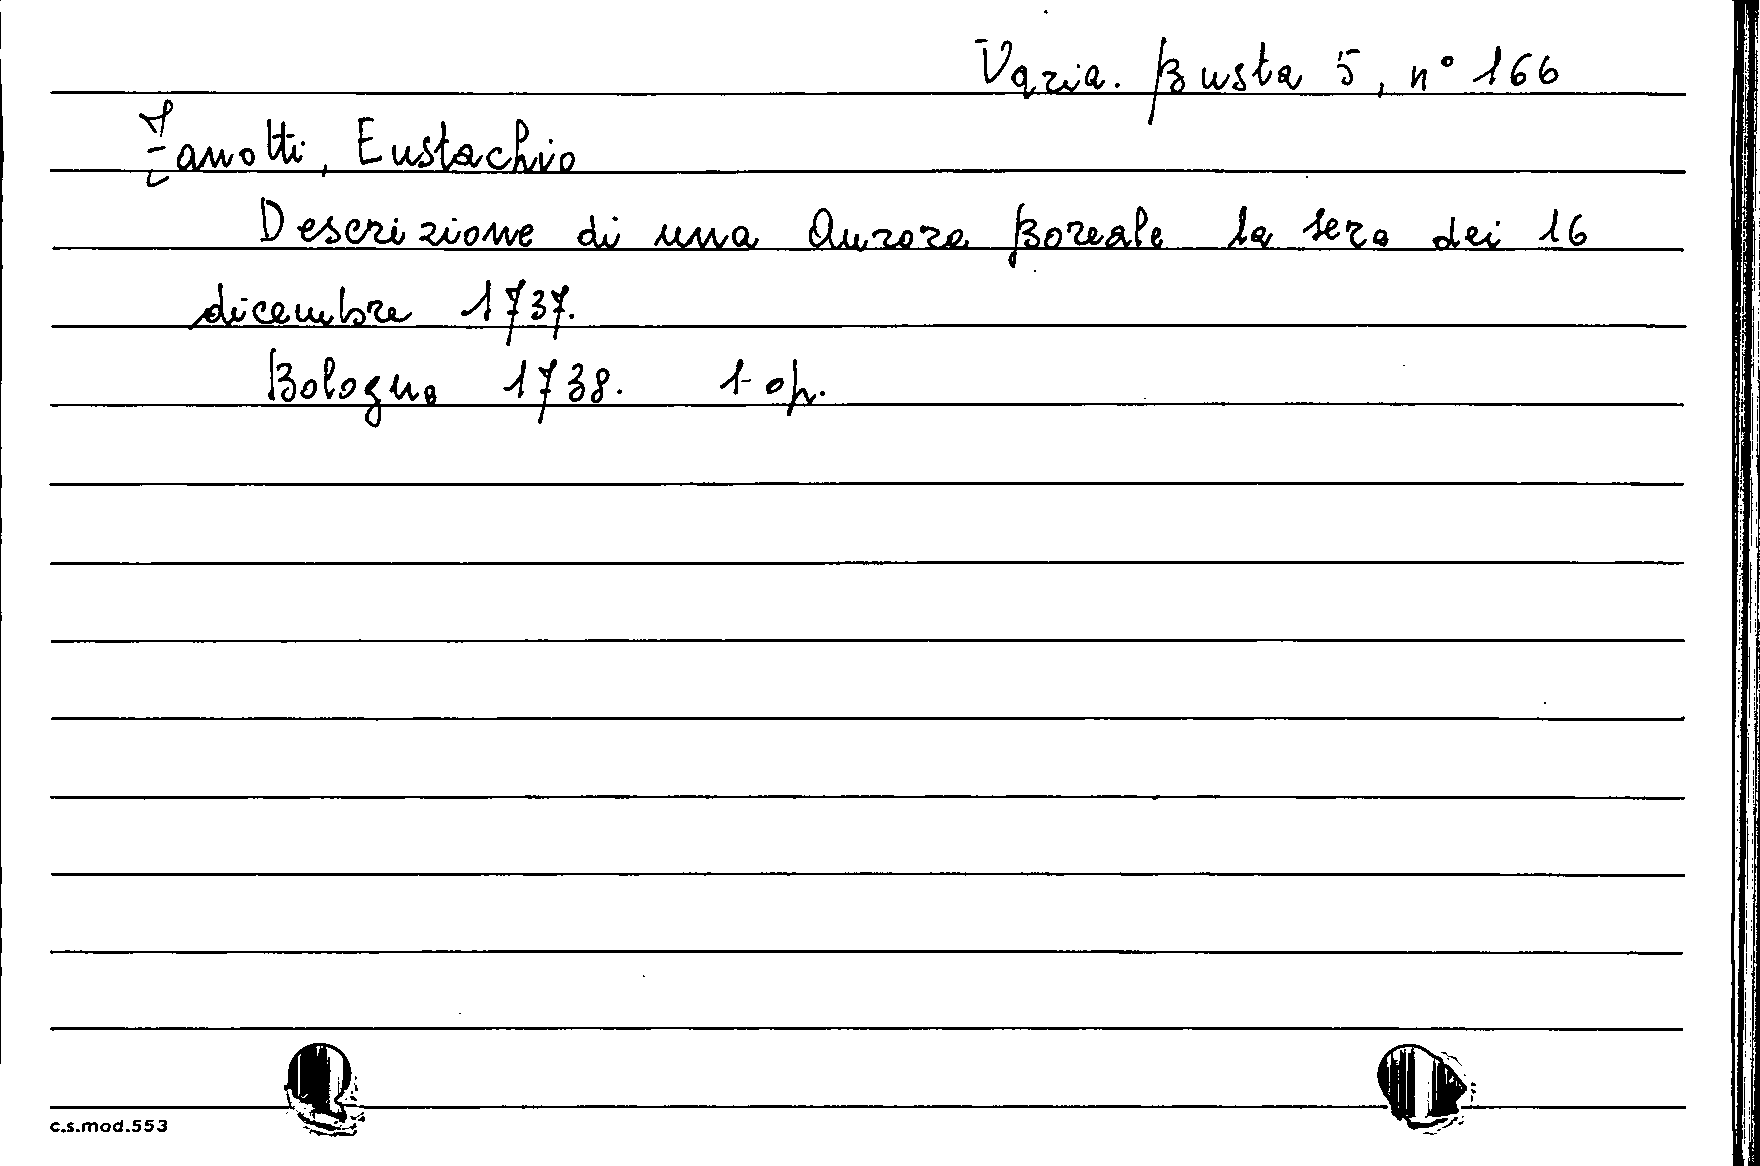 Varia. Busta 5, n° 166
Zanotti, Eustachio
Descrizione di una Aurora Boreale la sera dei 16
dicembre 1737.
Bologna 1738. 1 op.
c.s.mod.553